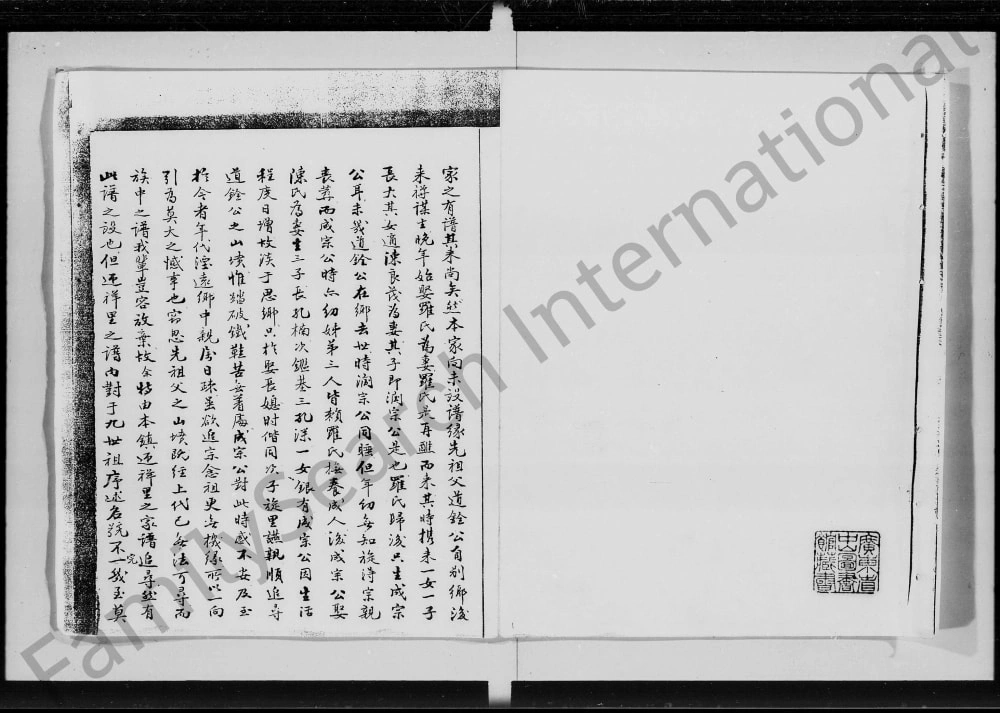 家之有譜其來尚矣然本家向未設譜緣先祖父道銓公自別鄉後
來祥謀生晚年始娶羅氏為妻羅氏是再醮而來其時携來一女一子
長大其女適陳良茂為妻其子即润宗公是也羅氏歸後只生成宗
公耳未幾道銓公在鄉去世時润宗公同 但年幼無知旋得宗親
喪葬而成宗公時亦幼姊弟三人皆賴羅氏撫養成人後成宗公娶
陳氏為妻生三子長孔楠次鑑基三孔深一女銀有成宗公因生活
程度日增故淡于思鄉只於娶長媳時偕同次子旋里謁親順追尋
道銓公之山墳惟踏破鐵鞋苦無着處成宗公對此時感不安及至
於今者年代湮遠鄉中親房日疎虽欲追宗念祖更無機緣所以一向
引為莫大之憾事也窃思先祖父之山墳既經上代已無法可尋而
族中之譜我輩豈容放棄故余特由本鎮迎祥里之家譜追尋然有
此譜之設也但迎祥里之譜内對于九世祖序述名號不一幾至莫
完
廣東省
中山圖書
館藏書
FamilySearch International